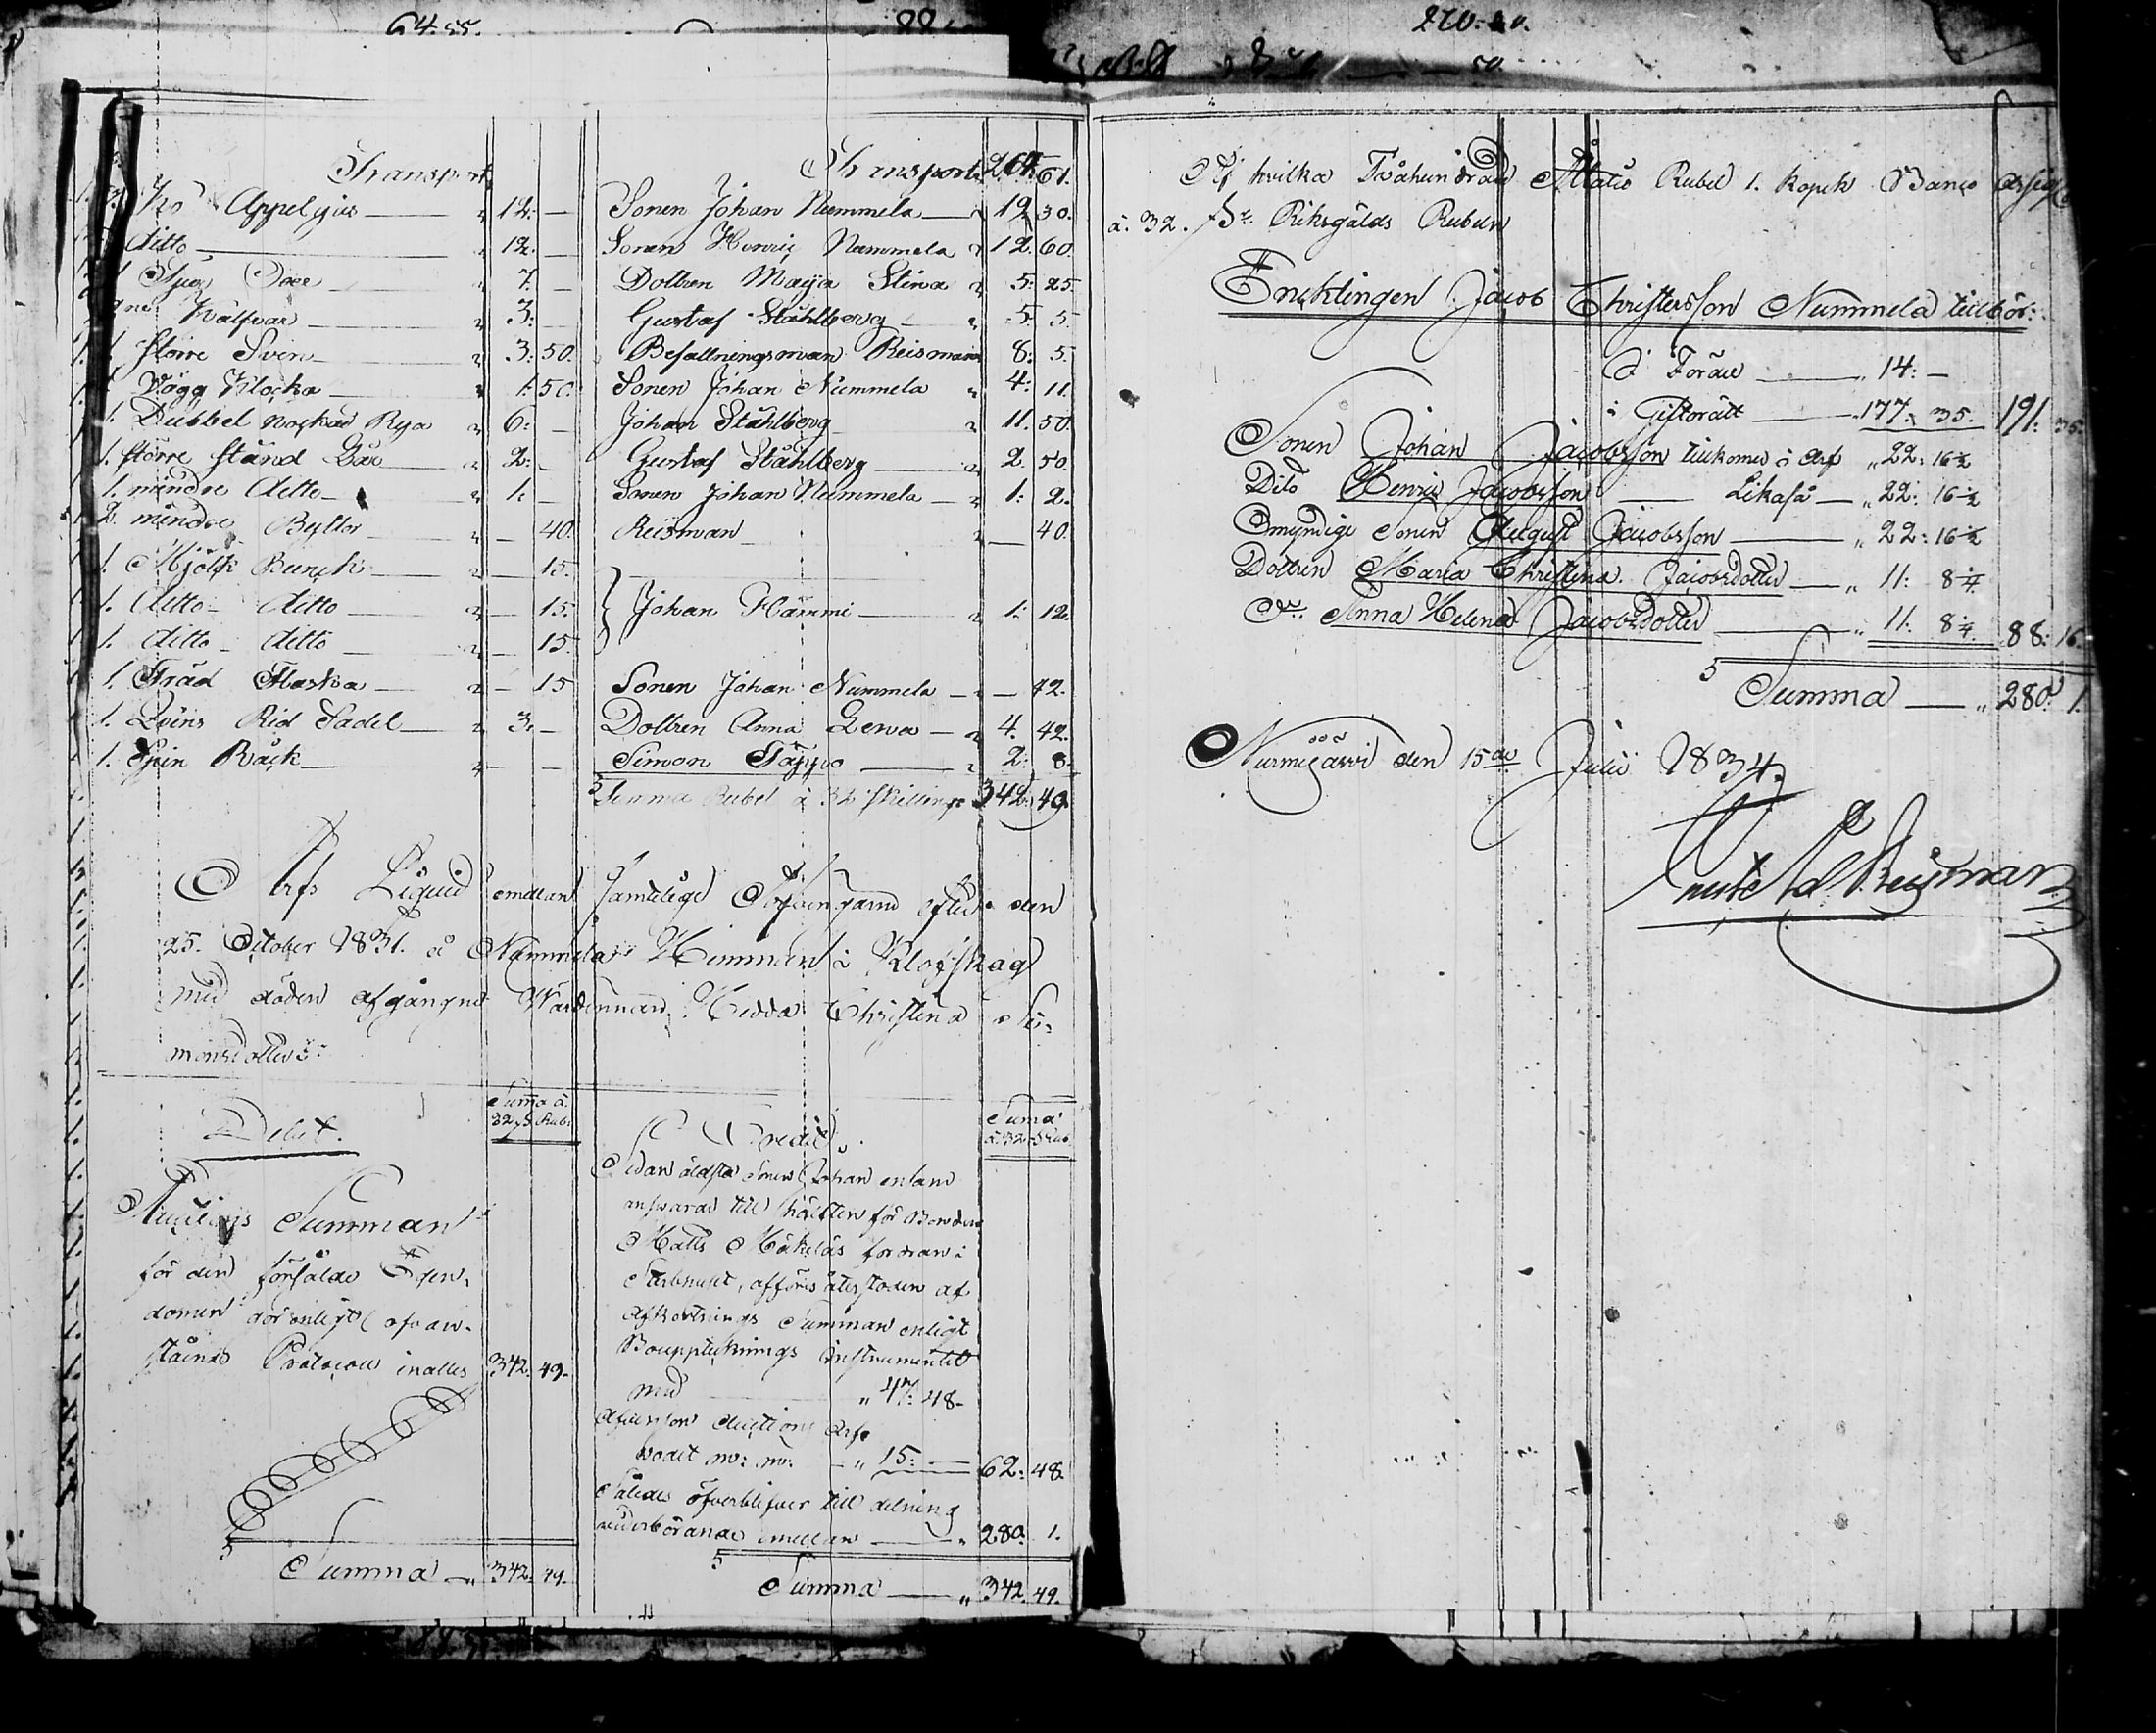 64:55.
270:
Transport
1. Ko Appelgus — " 12: —
ditto — " 12: —
Tjur Oxe — " 7. —
Kalfvar — " 3: —
1. större Svin — " 3: 50.
1. Vägg Klocka — " 1: 50.
1. Dubbel nockad Rya " 6: —
1. större ständ Kar — " 2: —
1. mindre ditto — " 1: —
2. mindre Byttor — " — 40.
1. Mjölk Bunck — " — 15.
1. ditto ditto — " — 15.
1. ditto ditto — " — 15.
1. Träd Flaska — " — 15
1. Qvins Rid Sadel — " 3: —
1. Spin Råck — " — —
Transport 264. 61.
Sonen Johan Nummela — " 12 30.
Sonen Henric Nummela " 12. 60.
Dottren Maija Stina " 5: 25
Gustaf Ståhlberg — " 5. 5.
Befallningsman Reisman 8: 5.
Sonen Johan Nummela " 4: 11.
Johan Ståhlberg " 11. 50.
Gustaf Ståhlberg — " 2. 50.
Sonen Johan Nummela — " 1: 2.
Reisman — " — 40.
Johan Hämmi — " 1: 12.
Sonen Johan Nummela — " — 42.
Dottren Anna Lena — " 4. 42.
Simon Täppo — " 2: 8.
Summa Rubel à 32 skillingr 342. 49.
Arfs Liquid emellan samtelige Arfvingarne efter den
25. October 1831. å Nummela Hemman i Klofskog
med döden afgångne Värdinnan Hedda Christina Si-
monsdotter:
Debet.
Suma à
32 sk Rub:
Auctions Summan
för den försålde Egen-
domen gör enligt ofvan-
stående Protocoll inalles 342. 49.
Summa — " 342. 49.
Credit.
Suma
à 32 sk Rub.
Sedan äldsta Sonen Johan ensam
ansvarar till hälften för Bonden
Matts Mäkeläs fordran i
Sterbhuset, afföres återstoden af
Afkortnings Summan enligt
Bouppteknings Instrumentet
med — " 47: 48.
Afven för Auctions Arf-
vodet m: m: — " 15: — 62: 48.
Således öfverblifver till delning
vederbörande emellan — " 280. 1.
Summa — " 342. 49.
Af hvilka Tvåhundrade Åttatio Rubel 1. kopek Banco Assign
à 32. sk: Riksgälds Rubeln
Enklingen Jacob Christersson Nummela tillhör:
I Fördel — " 14: —
i Giftorätt — " 177. 35. 191: 35.
Sonen Johan Jacobsson tilkomer i Arf " 22: 16½
Dito Henric Jacobsson — Likaså — " 22: 16½
Omyndige Sonen August Jacobsson — " 22: 16½
Dottren Maria Christina Jacobsdotter — " 11: 8¼
D:o Anna Helena Jacobsdotter — " 11: 8¼. 88: 16.
Summa — " 280: 1.
Nurmijärvi den 15de Julii 1834.
Reisman